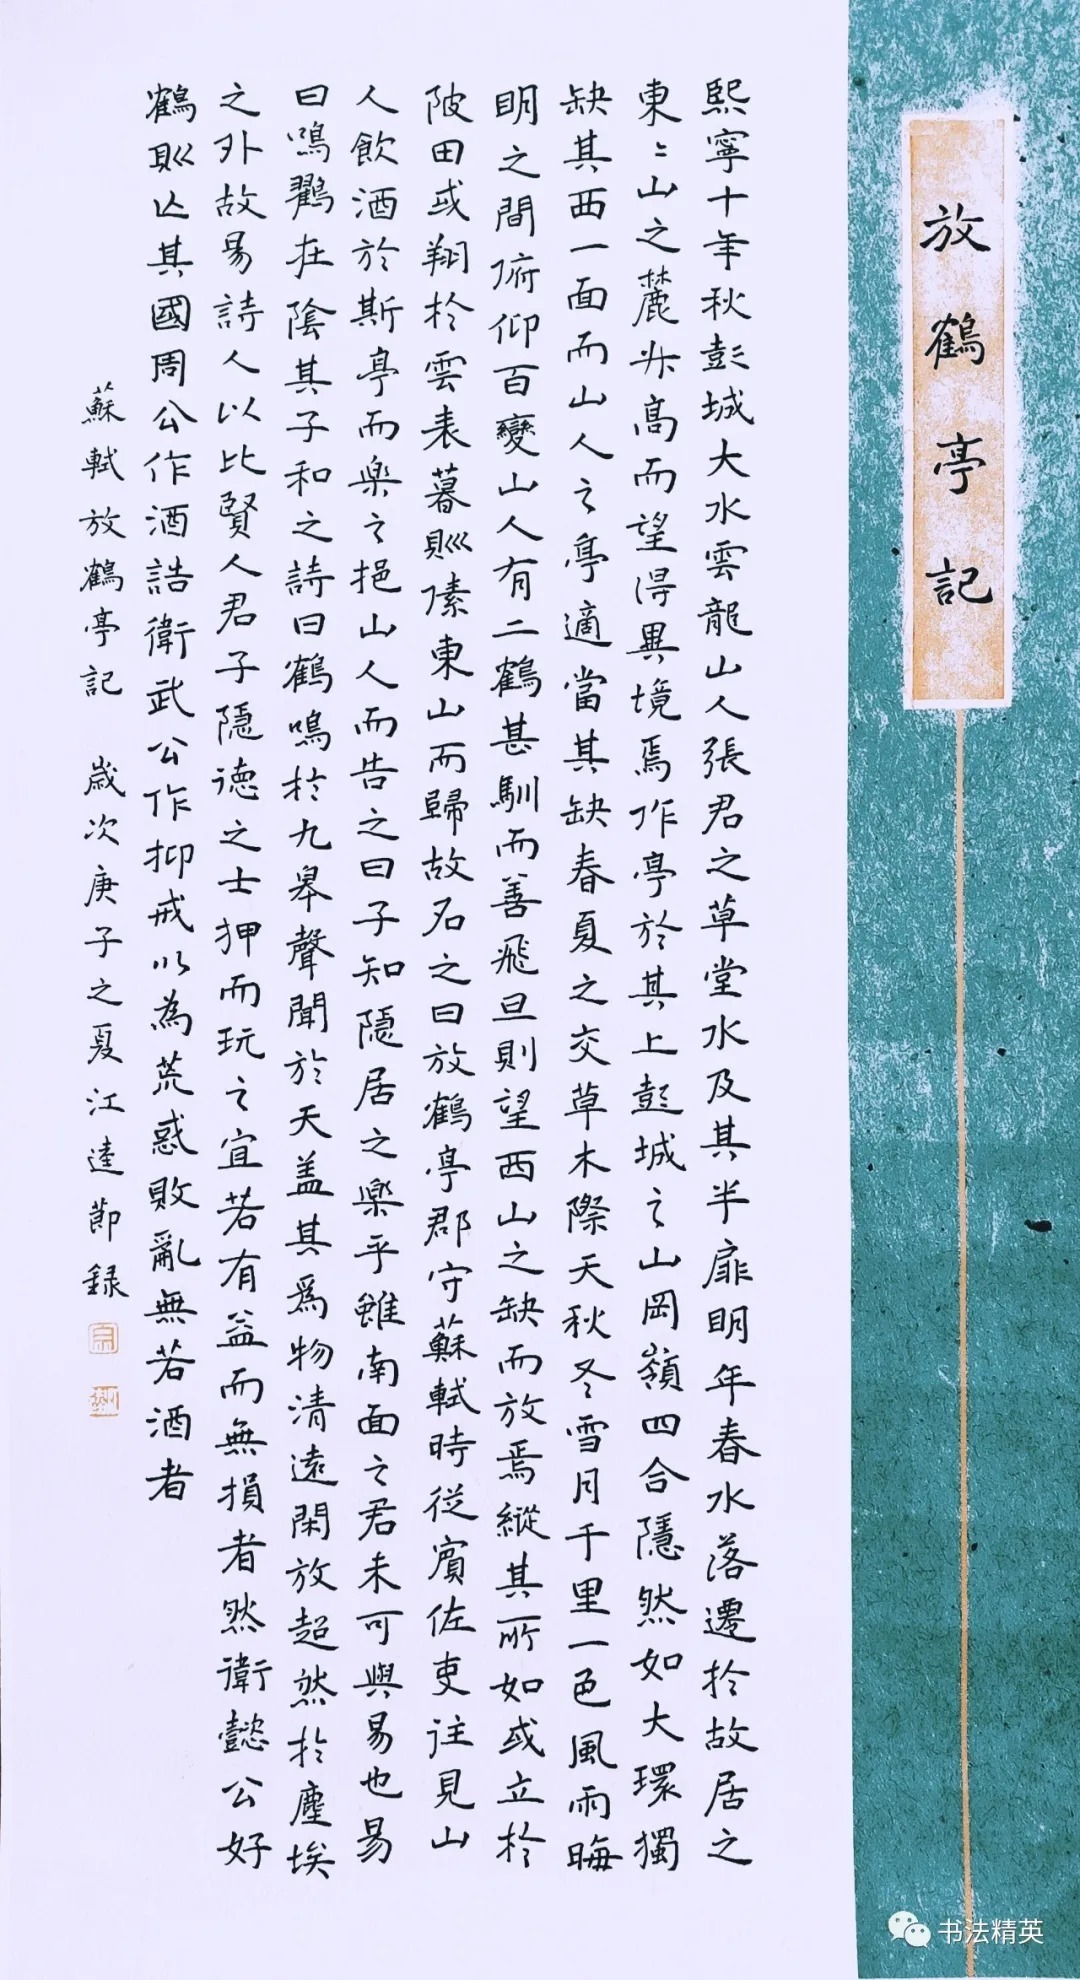 放鶴亭記
熙寧十年秋彭城大水雲龍山人張君之草堂水及其半扉明年春水落遷於故居之
東〻山之麓升高而望得異境焉作亭於其上彭城之山岡嶺四合隱然如大環獨
缺其西一面而山人之亭適當其缺春夏之交草木際天秋冬雪月千里一色風雨晦
明之間俯仰百變山人有二鶴甚馴而善飛旦則望西山之缺而放焉縱其所如或立於
陂田或翔於雲表暮則傃東山而歸故名之曰放鶴亭郡守蘇軾時從賓佐吏往見山
人飲酒於斯亭而樂之挹山人而告之曰子知隱居之樂乎雖南面之君未可與易也易
曰鳴鶴在陰其子和之詩曰鶴鳴於九皋聲聞於天盖其爲物清遠閑放超然於塵埃
之外故易詩人以比賢人君子隱德之士狎而玩之宜若有益而無損者然衛懿公好
鶴則亡其國周公作酒誥衛武公作抑戒以為荒惑敗亂無若酒者
蘇軾放鶴亭記 歲次庚子之夏江逵節録
书法精英